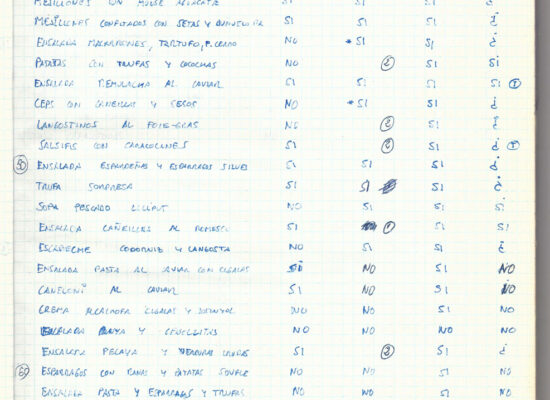 MEJILLONES CON MOUSE
MEJILLONES CONFITADOS CON SETAS Y SI SI SI ¿
ENSALADA , TARTUFO, P. NO *SI SI ¿
PATATAS CON TRUFAS Y COCOCHAS NO 2 SI SI
ENSALADA REMOLACHA AL CAVIAR SI SI SI SI 1
CEPS CON CANEILLAS Y SESOS NO *SI SI ¿
LANGOSTINOS AL FOIE-GRAS NO 2 SI ¿
SALSIFIS CON CARACOLINES SI 2 SI ¿ 1
50 ENSALADA ESPARDEÑAS Y ESPARRAGOS SILVES SI SI SI ¿
TRUFA SORPRESA SI SI SI ¿
SOPA PESCADO LILIPUT NO SI SI SI
ENSALADA CAÑEILLAS AL ROMESCO SI 1 SI SI
ESCABECHE CODORNIZ Y LANGOSTA NO SI SI ¿
ENSALADA PASTA AL CAVIAR CON CIGALAS SI NO SI NO
CANELONI AL CAVIAR SI NO SI NO
CREMA ALCACHOFA CIGALAS Y NO NO SI NO
ENSALADA Y NO NO NO NO
ENSALADA PELAYA Y VERDURAS SI 2 SI ¿
60 ESPARRAGOS CON RANAS Y PATATAS SOUFLE NO NO SI NO
ENSALADA PASTA Y ESPARRAGOS Y TRUFAS NO NO SI NO